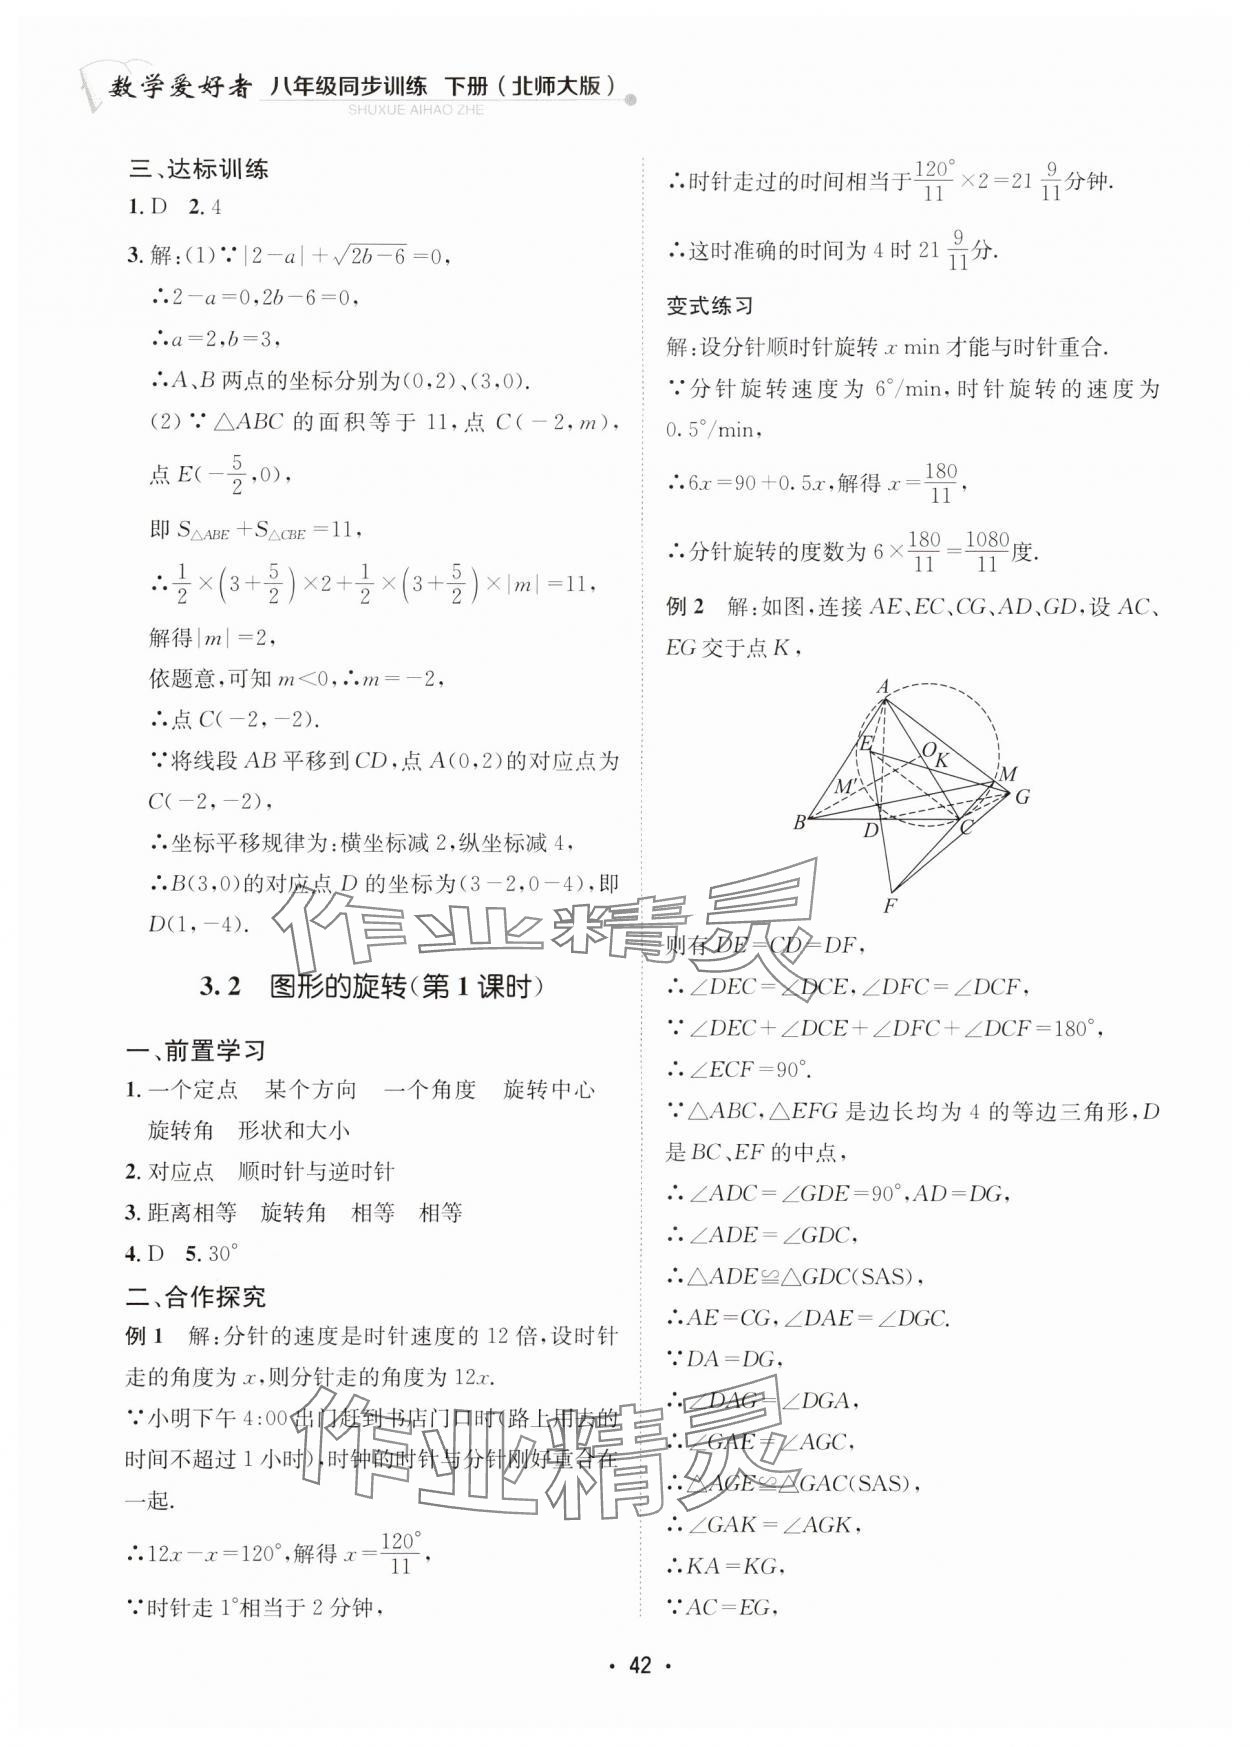 数学爱好者 八年级同步训练 下册（北师大版）
SHUXUE AIHAO ZHE
三、达标训练
1.D 2.4
3.解:(1)∵|2-a|+√(2b-6)=0,
∴2-a=0,2b-6=0,
∴a=2,b=3,
∴A、B两点的坐标分别为(0,2)、(3,0).
(2)∵△ABC的面积等于11,点C(-2,m),
点E(-5/2,0),
即S△ABE+S△CBE=11,
∴1/2×(3+5/2)×2+1/2×(3+5/2)×|m|=11,
解得|m|=2,
依题意,可知m<0,∴m=-2,
∴点C(-2,-2).
∵将线段AB平移到CD,点A(0,2)的对应点为
C(-2,-2),
∴坐标平移规律为:横坐标减2,纵坐标减4,
∴B(3,0)的对应点D的坐标为(3-2,0-4),即
D(1,-4).
3.2 图形的旋转(第1课时)
一、前置学习
1.一个定点 某个方向 一个角度 旋转中心
旋转角 形状和大小
2.对应点 顺时针与逆时针
3.距离相等 旋转角 相等 相等
4.D 5.30°
二、合作探究
例1 解:分针的速度是时针速度的12倍,设时针
走的角度为x,则分针走的角度为12x.
∵小明下午4:00出门赶到书店门口时(路上用去的
时间不超过1小时),时钟的时针与分针刚好重合在
一起.
∴12x-x=120°,解得x=120°/11,
∵时针走1°相当于2分钟,
∴时针走过的时间相当于120°/11×2=21 9/11分钟.
∴这时准确的时间为4时21 9/11分.
变式练习
解:设分针顺时针旋转x min才能与时针重合.
∵分针旋转速度为6°/min,时针旋转的速度为
0.5°/min,
∴6x=90+0.5x,解得x=180/11,
∴分针旋转的度数为6×180/11=1080/11度.
例2 解:如图,连接AE、EC、CG、AD、GD,设AC、
EG交于点K,
A
E
O
K
M
M'
G
B
D
C
F
则有DE=CD=DF,
∴∠DEC=∠DCE,∠DFC=∠DCF,
∵∠DEC+∠DCE+∠DFC+∠DCF=180°,
∴∠ECF=90°.
∵△ABC,△EFG是边长均为4的等边三角形,D
是BC、EF的中点,
∴∠ADC=∠GDE=90°,AD=DG,
∴∠ADE=∠GDC,
∴△ADE≌△GDC(SAS),
∴AE=CG,∠DAE=∠DGC.
∵DA=DG,
∴∠DAG=∠DGA,
∴∠GAE=∠AGC,
∴△AGE≌△GAC(SAS),
∴∠GAK=∠AGK,
∴KA=KG,
∵AC=EG,
作业精灵
作业精灵
·42·